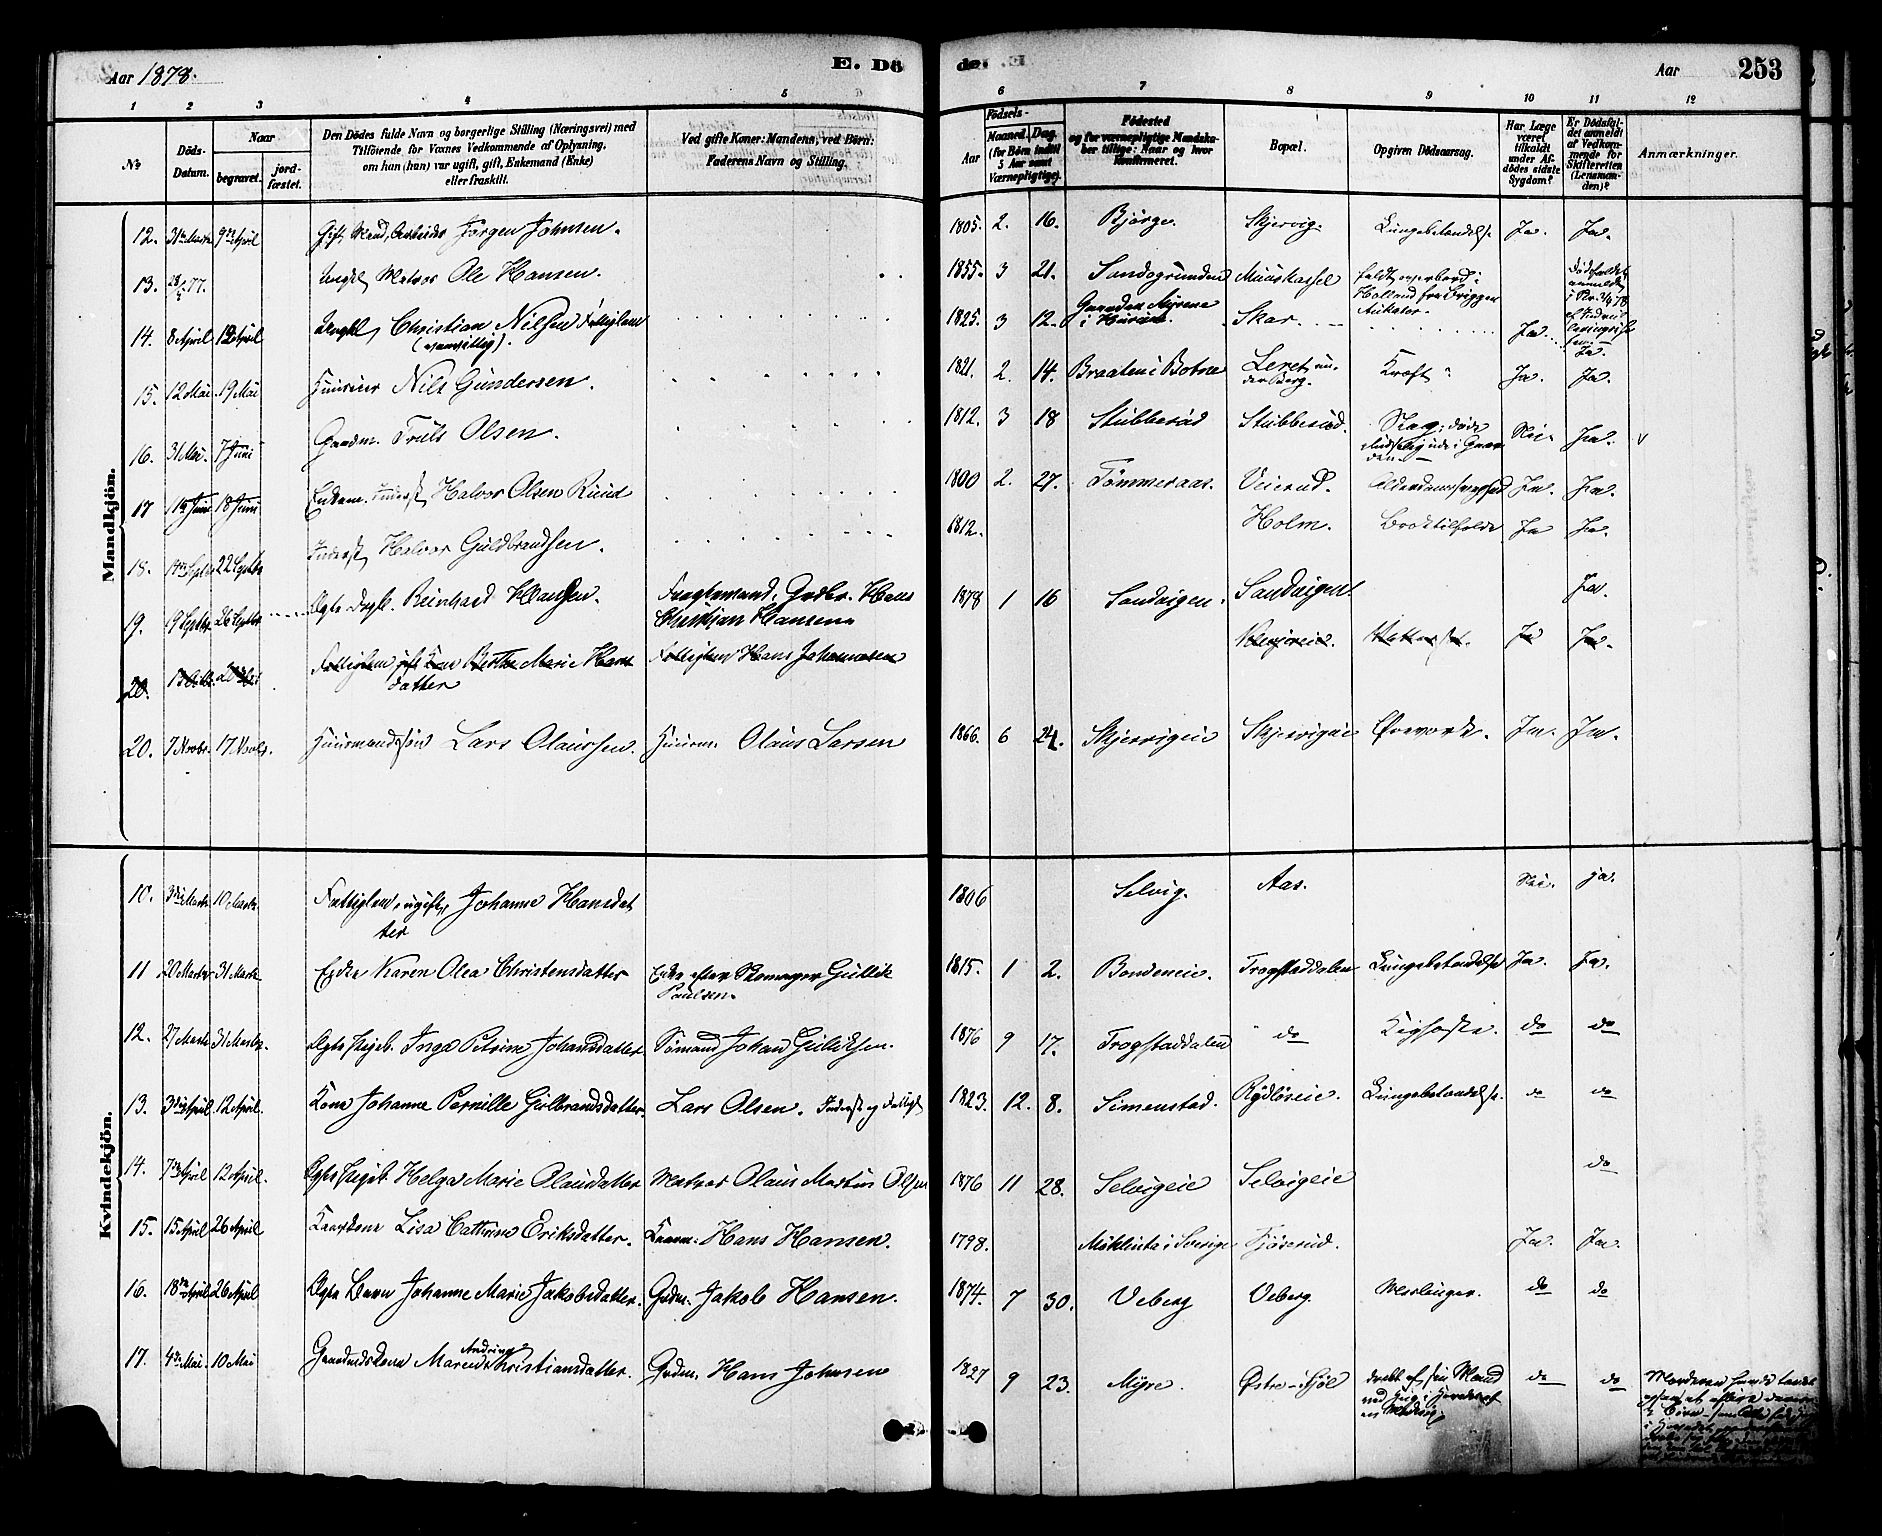 Aar 1878.
E. Dö
de. E.
Aar
253
1 2 3 4 5 6 7 8 9 10 11 12
No
Döds-Datum.
Naar
begravet.
jord-fæstet.
Den Dödes fulde Navn og borgerlige Stilling (Næringsvei) med
Tilföiende for Voxnes Vedkommende af Oplysning,
om han (hun) var ugift, gift, Enkemand (Enke)
eller fraskilt.
Ved gifte Koner: Mandens, ved Börn:
Faderens Navn og Stilling.
Födsels-
Aar
Maaned.
Dag.
(for Börn indtil
5 Aar samt
Værnepligtige).
Födested
og for værnepligtige Mandska-
ber tillige: Naar og hvor
konfirmeret.
Bopæl.
Opgiven Dödsaarsag.
Har Læge
været
tilkaldt
under Af-
dödes sidste
Sygdom?
Er Dödsfal-
det anmeldt
af Vedkom-
mende for
Skifteretten
(Lensman-
den)?
Anmærkninger.
Mandkjön.
12. 31te Marts 9de April Gift Mand, Arbeider Jørgen Johnsen. 1805. 2. 16. Bjørge. Skjervig. Lungebetændelse Ja. Ja.
13. 28/5 77. Ungk. Matros Ole Hansen. 1855. 3 21. Sandegrunden Muuskassel faldt overbord i
Holland fra Briggen
14. 8 April 12 April Ungkl, Christian Nilsen Fattiglem
(vanvittig). 1825. 3 12. Skar. Ja.
15. 12 Mai. 19 Mai Huuseier Nils Gundersen. 1821. 2. 14. Braaten i Botne Leret un-
der Berg. Kræft Ja. Ja.
16. 31 Mai. 7 Juni Gaardm. Truls Olsen. 1812. 3 18 Stubberød Stubberød. Nei. Ja.
17 11te Juni 18 Juni Enkem. Inderst Halvor Olsen Ruud 1800 2. 27. Tømmeraas. Veierud. Alderdomssvaghed Ja. Ja.
18. 14de Septbr 22 Septbr Inderst Halvor Guldbrandsen. 1812. Holm. Broktilfælde Ja Ja
19. 19 Septbr. 26 Septbr. Ægte Dreb. Reinhard Hansen. Fragtemand, Gardbr. Hans
Christian Hansen 1878 1 16 Sandvigen. Sandvigen. Ja.
20. Fattiglem gift Kone Berthe Marie Hans
datter Fattiglem Hans Johannesen Ja Ja.
20. 7 Novbr. 17. Novbr. Huusmandssøn Lars Olaussen. Huusm. Olaus Larsen 1866. 6 24. Skjervigeie Skjervigeie Øreværk. Ja. Ja.
Kvindekjön.
10. 3die Marts 10 Marts Fattiglem, ugift, Johanne Hansdat
ter 1806 Selvig. Aas. Nei. ja.
11 20 Marts 31 Marts Enke Karen Olea Christensdatter Enke efter Skomager Gullik
Paulsen. 1815. 1 2. Bondeneie. Trogstaddalen Lungebetændelse Ja. Ja.
12. 27 Marts 31 Marts. Ægte Pigeb. Inga Petrine Johansdatter Sømand Johan Gulliksen. 1876 9 17. Trogstaddalen do Kighoste. do do
13. 3die April 12 April. Kone Johanne Pernille Gulbrandsdatter. Lars Olsen. Inderst og Fattigl 1823. 12. 8. Simenstad. Rydløseie. Lungebetændelse. do do
14. 7de April 12 April. Ægte Pigeb. Helga Marie Olausdatter Matros Olaus Martin Olsen 1876 11 28. Selvigeie Selvigeie do
15. 15 April 26 April Kaarkone Lisa Cathrine Eriksdatter. Kaarm: Hans Hansen. 1798. Möklinta i Sverige Fjöserud. Ja. Ja.
16. 18de April 26 April Ægte Barn Johanne Marie Jakobsdatter. Grdm. Jakob Hansen. 1874. 7 30. Veberg Veberg. Meslinger. do do
17. 4de Mai. 10 Mai Gaardmandskone Maren Andrine Christiansdatter. Grdm. Hans Johnsen 1827 9 23. Myre. Østre-Sjöl dræbt af sin Mand do do